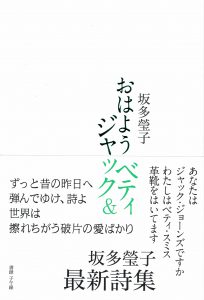 坂多瑩子
おはよう
ジャック&
ベティ
あなたは
ジャック・ジョーンズですか
わたしはベティ・スミス
革靴をはいてます
ずっと昔の昨日へ
弾んでゆけ、詩よ
世界は
擦れちがう破片の愛ばかり
坂多瑩子
最新詩集